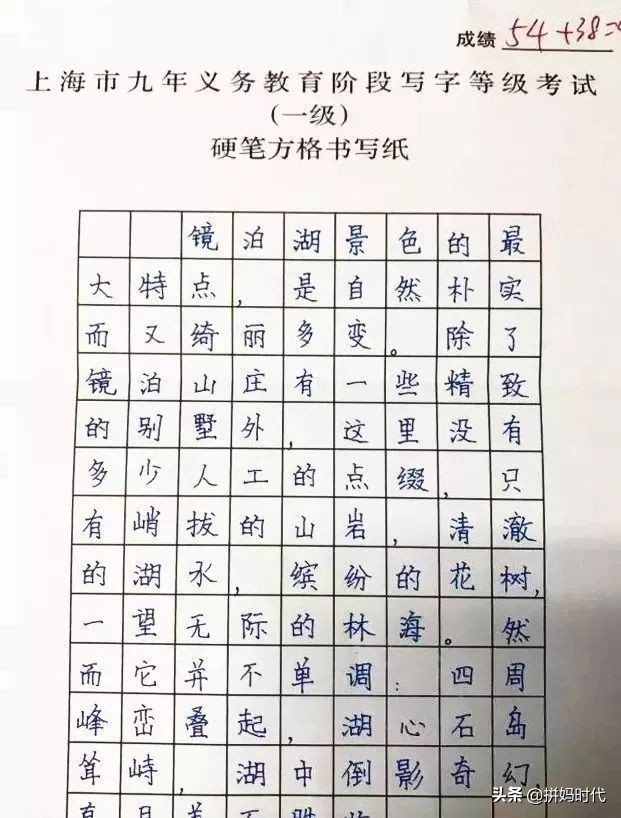 成绩 54+38=
上海市九年义务教育阶段写字等级考试
(一级)
硬笔方格书写纸
镜泊湖景色的最
大特点,是自然朴实
而又绮丽多变。除了
镜泊山庄有一些精致
的别墅外,这里没有
多少人工的点缀,只
有峭拔的山岩,清澈
的湖水,缤纷的花树,
一望无际的林海。然
而它并不单调:四周
峰峦叠起,湖心石岛
耸峙,湖中倒影奇幻,
头条 @拼妈时代